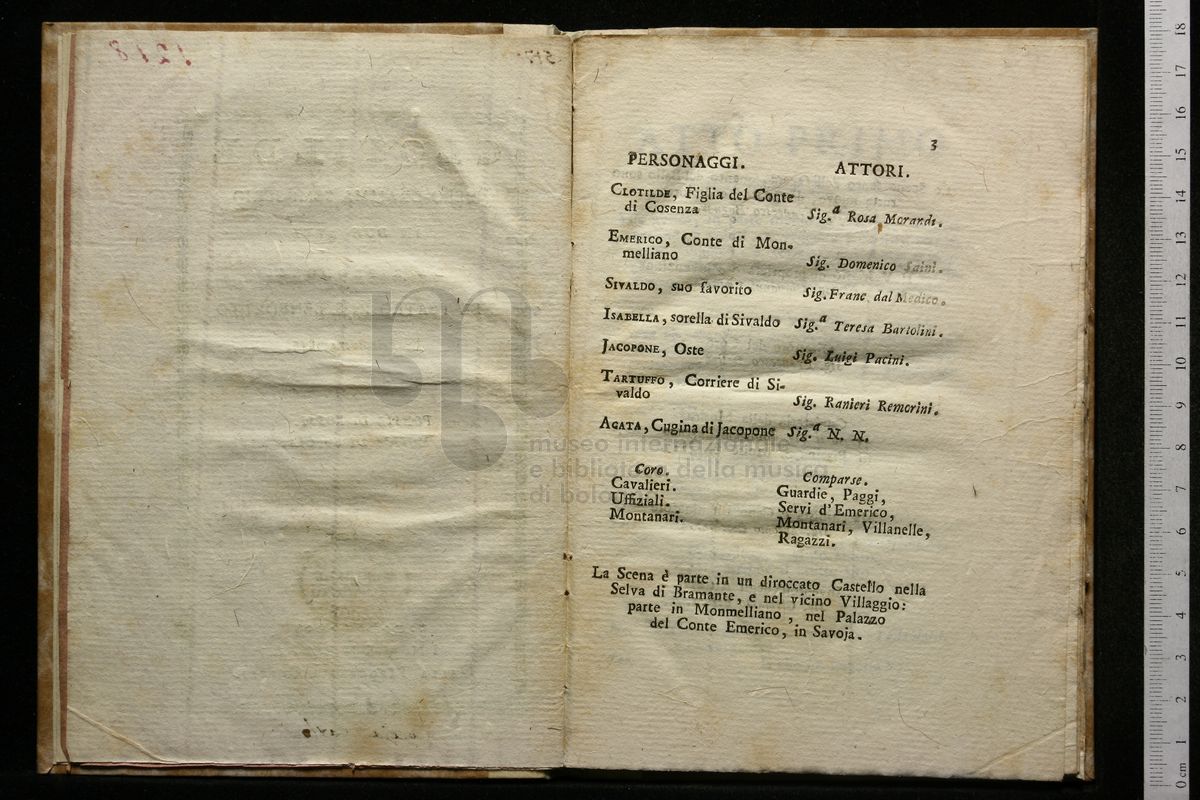 3
PERSONAGGI. ATTORI.
CLOTILDE, Figlia del Conte
di Cosenza Sig.ª Rosa Morandi.
EMERICO, Conte di Mon-
melliano Sig. Domenico Saini.
SIVALDO, suo favorito Sig. Franc dal Medico.
ISABELLA, sorella di Sivaldo Sig.ª Teresa Bartolini.
JACOPONE, Oste Sig. Luigi Pacini.
TARTUFFO, Corriere di Si-
valdo Sig. Ranieri Remorini.
AGATA, Cugina di Jacopone Sig.ª N. N.
Coro.
Cavalieri.
Uffiziali.
Montanari.
Comparse.
Guardie, Paggi,
Servi d'Emerico,
Montanari, Villanelle,
Ragazzi.
La Scena è parte in un diroccato Castello nella
Selva di Bramante, e nel vicino Villaggio:
parte in Monmelliano, nel Palazzo
del Conte Emerico, in Savoja.
museo internazionale
e biblioteca della musica
di bologna
0 cm 1 2 3 4 5 6 7 8 9 10 11 12 13 14 15 16 17 18